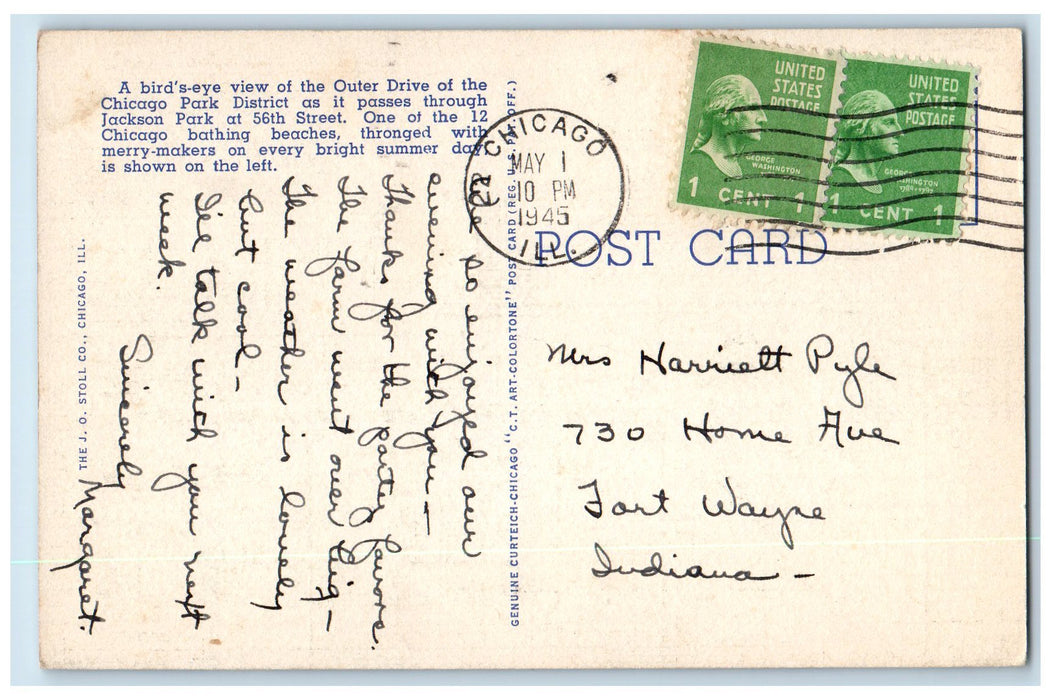 A bird's-eye view of the Outer Drive of the
Chicago Park District as it passes through
Jackson Park at 56th Street. One of the 12
Chicago bathing beaches, thronged with
merry-makers on every bright summer day
is shown on the left.
We so enjoyed our
evening with you —
Thanks for the party favors.
The farm went over big —
The weather is lovely
but cool —
I'll talk with you next
week.
Sincerely
Margaret.
THE J. O. STOLL CO., CHICAGO, ILL.
GENUINE CURTEICH-CHICAGO "C.T. ART-COLORTONE" POST CARD (REG. U.S. PAT. OFF.)
CHICAGO
22
MAY 1
10 PM
1945
ILL.
UNITED
STATES
POSTAGE
GEORGE
WASHINGTON
1 CENT 1
UNITED
STATES
POSTAGE
GEORGE
WASHINGTON
1789-1797
1 CENT 1
POST CARD
Mrs Harriett Pyle
730 Home Ave
Fort Wayne
Indiana —